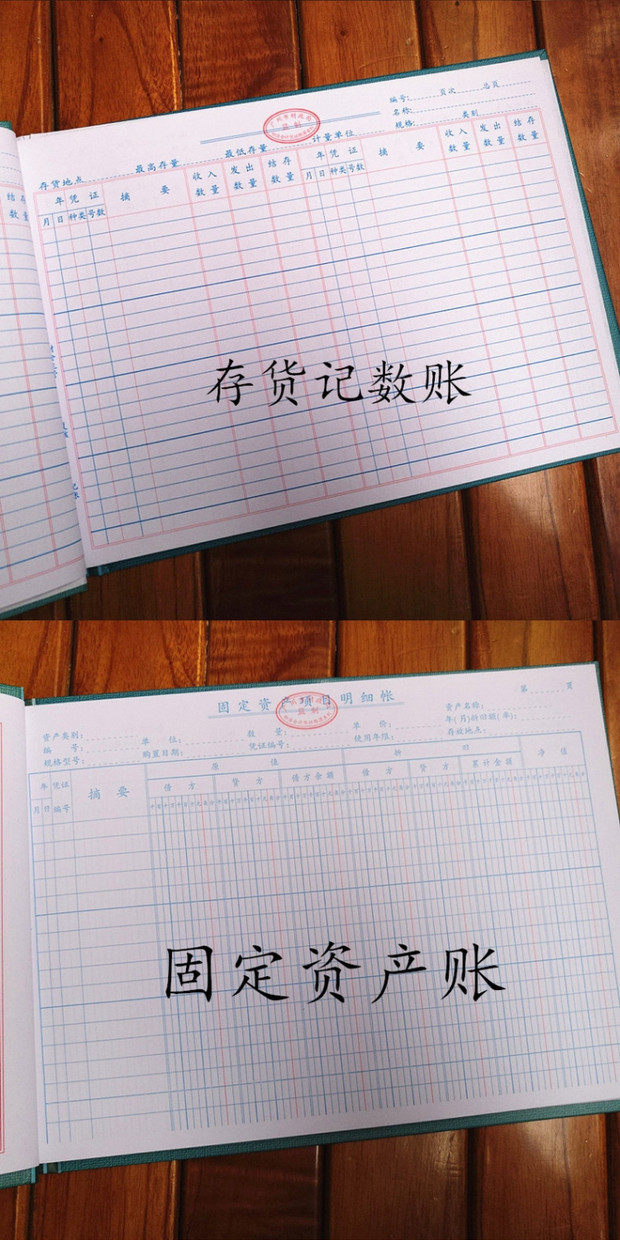 编号: 页次 总页
名称:
规格: 类别
存货地点 最高存量 最低存量 计量单位
年 凭证 摘要 收入数量 发出数量 结存数量 年 凭证 摘要 收入数量 发出数量 结存数量
月 日 种类 号数 月 日 种类 号数
结存数量
存货记数账
固定资产项目明细帐
第 页
资产类别: 单位: 数量: 单价: 资产名称:
编号: 购置日期: 凭证编号: 使用年限: 年(月)折旧额(率):
规格型号: 存放地点:
年 凭证 摘要 原值 折旧 净值
月 日 编号 借方 贷方 借方余额 借方 贷方 累计金额
固定资产账